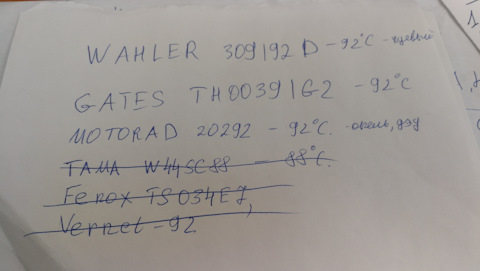 WAHLER 309192 D - 92°C
GATES TH00391G2 - 92°C
MOTORAD 20292 - 92°C. - опель, дэу
TAMA W44SC88 - 88°C.
Ferox TS034EJ,
Vernet - 92